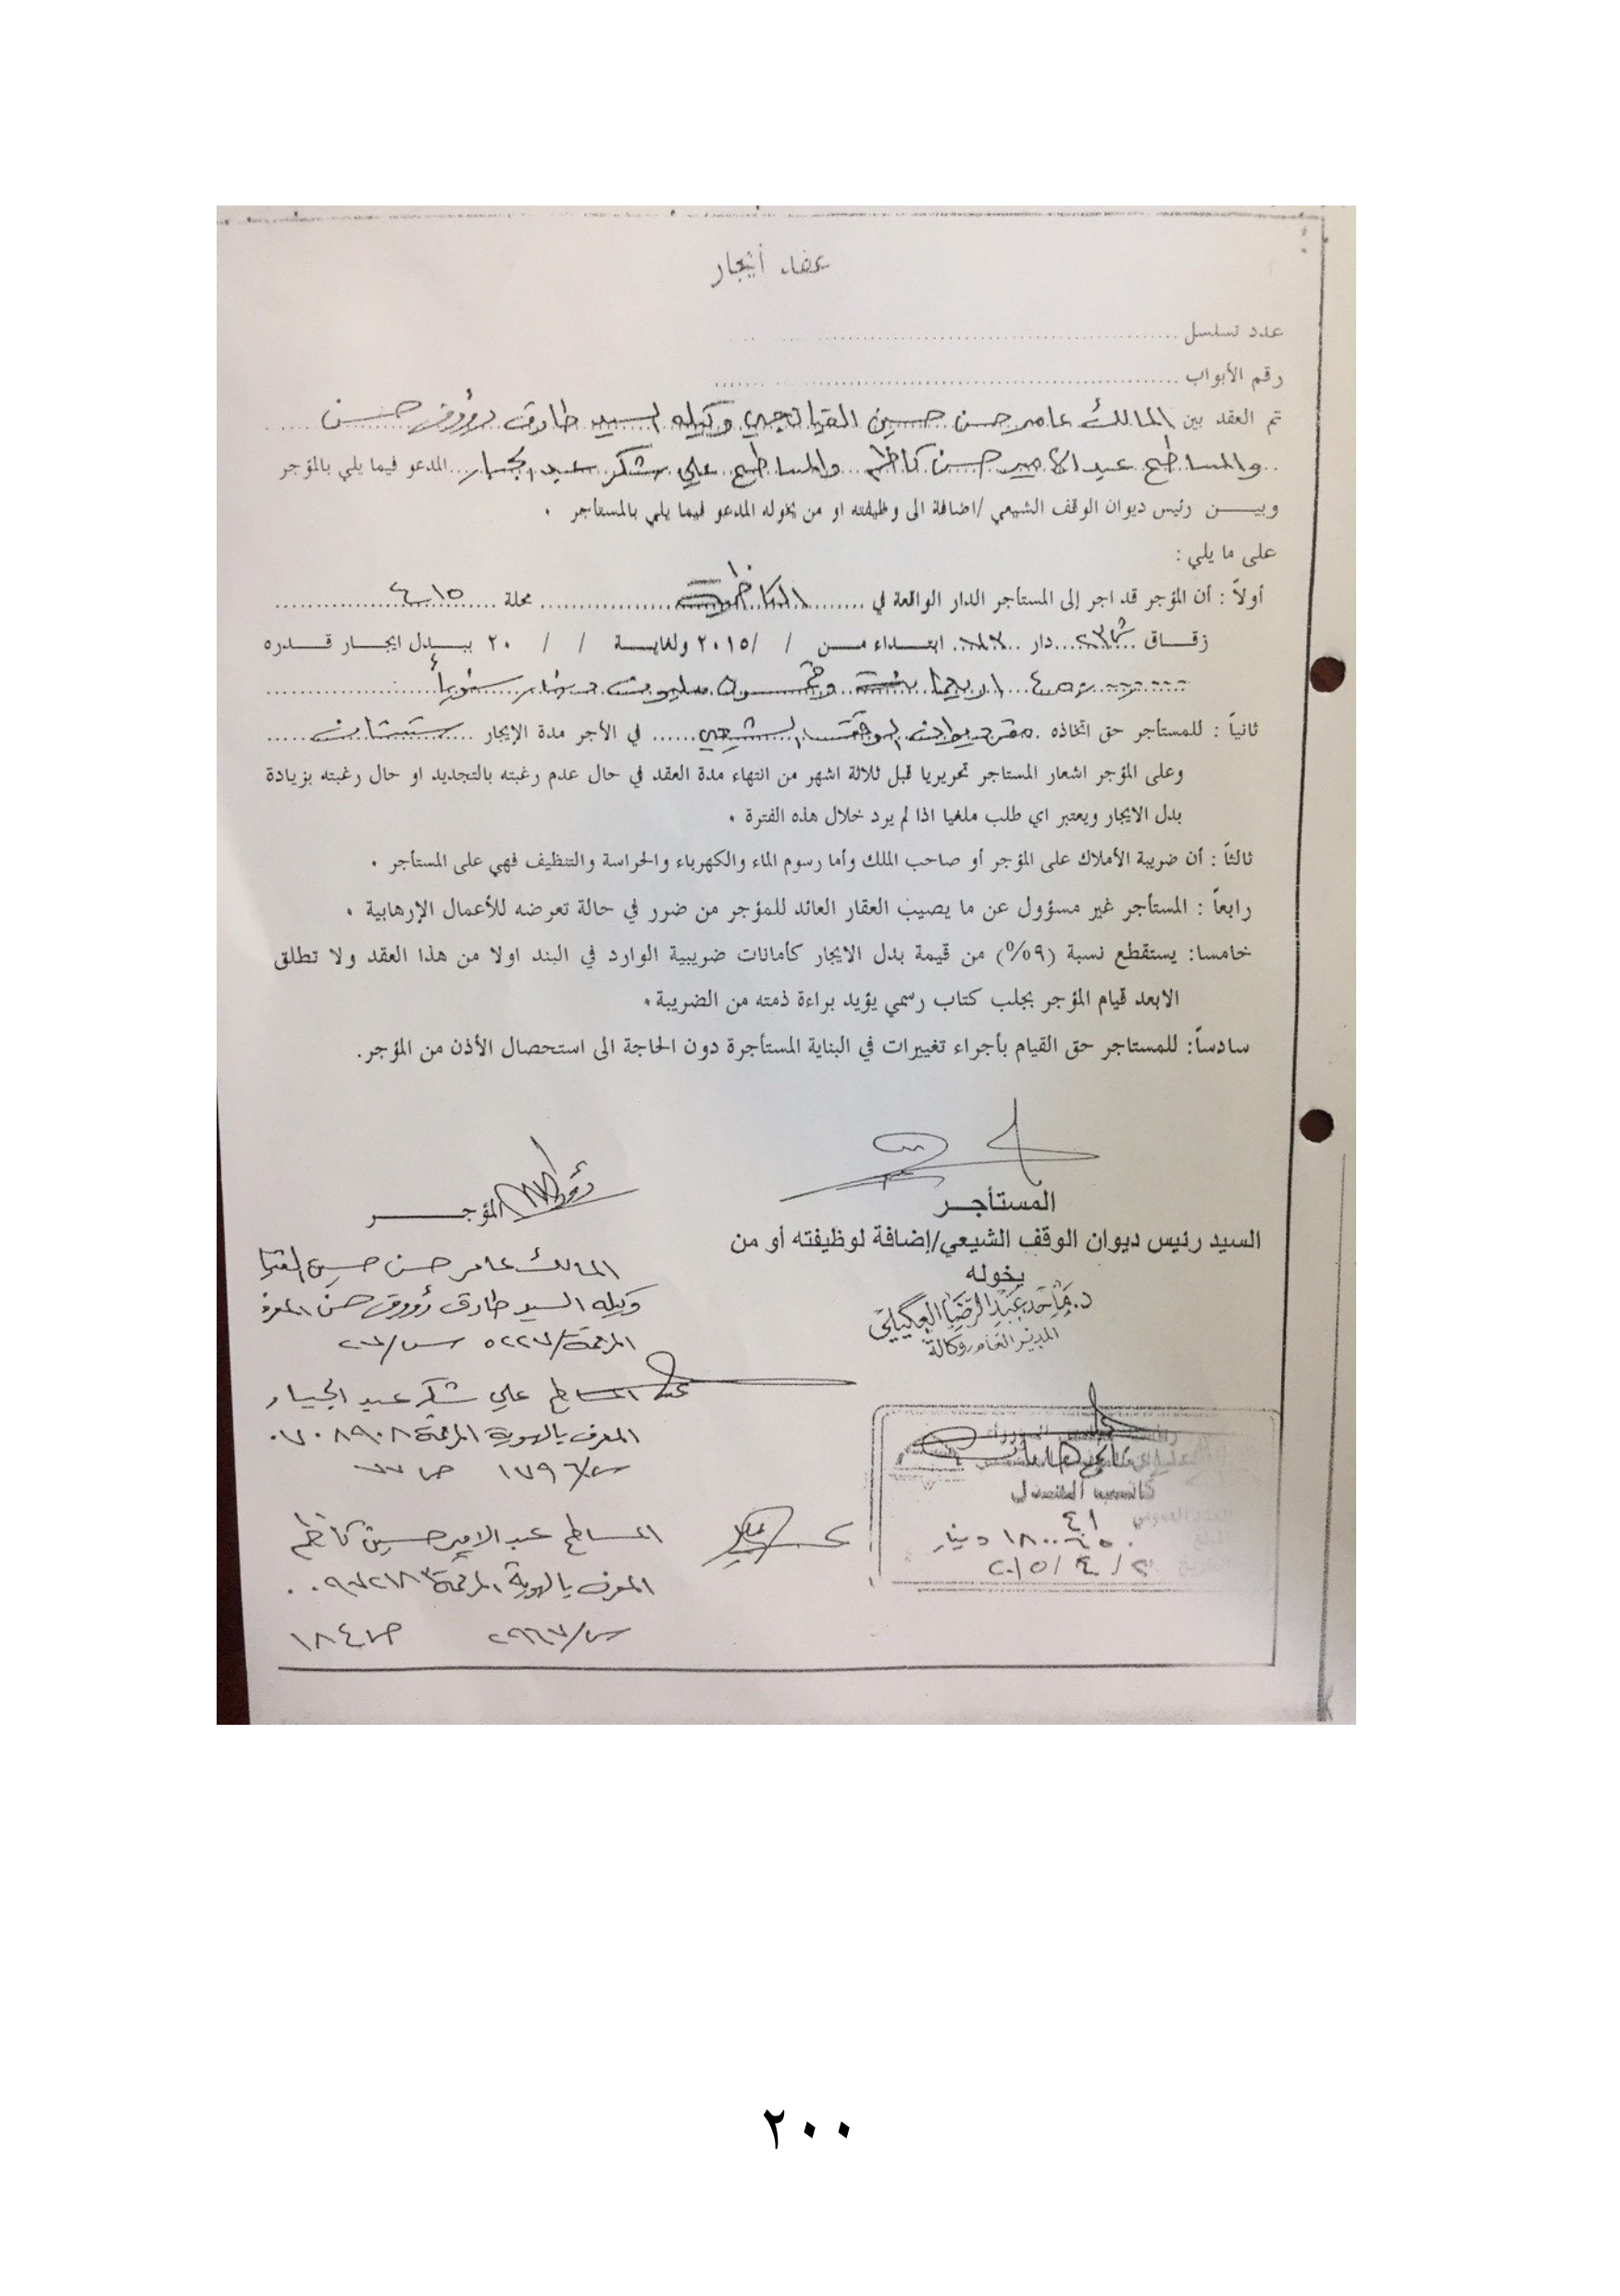 عقد أيجار
عدد تسلسل ........
رقم الأبواب ........
تم العقد بين المالك عامر حسن حسين القيانجي وكيله السيد طارق رؤوف حسن
والمساطح عبد الامير حسن كاظم والمساطح علي شكر عبد الجبار المدعو فيما يلي بالمؤجر
وبين رئيس ديوان الوقف الشيعي /اضافة الى وظيفته او من يخوله المدعو فيما يلي بالمستأجر .
على ما يلي :
أولاً : أن المؤجر قد اجر إلى المستأجر الدار الواقعة في الكاظمية محلة ٤١٥
زقاق دار ابتداء من / /٢٠١٥ ولغاية / / ٢٠ ببدل ايجار قدره
اربعمائة وخمسون مليون دينار سنوياً
ثانياً : للمستأجر حق اتخاذه مقر ديوان الوقف الشيعي في الأجر مدة الإيجار سنتان
وعلى المؤجر اشعار المستاجر تحريريا قبل ثلاثة اشهر من انتهاء مدة العقد في حال عدم رغبته بالتجديد او حال رغبته بزيادة
بدل الايجار ويعتبر اي طلب ملغيا اذا لم يرد خلال هذه الفترة .
ثالثاً : أن ضريبة الأملاك على المؤجر أو صاحب الملك وأما رسوم الماء والكهرباء والحراسة والتنظيف فهي على المستأجر .
رابعاً : المستأجر غير مسؤول عن ما يصيب العقار العائد للمؤجر من ضرر في حالة تعرضه للأعمال الإرهابية .
خامسا: يستقطع نسبة (٩%) من قيمة بدل الايجار كأمانات ضريبية الوارد في البند اولا من هذا العقد ولا تطلق
الابعد قيام المؤجر بجلب كتاب رسمي يؤيد براءة ذمته من الضريبة.
سادساً: للمستاجر حق القيام بأجراء تغييرات في البناية المستأجرة دون الحاجة الى استحصال الأذن من المؤجر.
المستأجر
السيد رئيس ديوان الوقف الشيعي/إضافة لوظيفته أو من
يخوله
د. ماجد عبد الرضا العگيلي
المدير العام وكالة
المؤجر
المالك عامر حسن حسين
وكيله السيد طارق رؤوف حسن
المرقمة/٥٢٢٧
المساطح علي شكر عبد الجبار
المعرف بالهوية المرقمة ٠٧٠٨٩٠٨
س/١٧٩٦ ص
المساطح عبد الامير حسين كاظم
المعرف بالهوية المرقمة
س/٢٩٦٧ ص ١٨٤
كاتب العدل
٤١
دينار
٢٠١٥/٤/٢
٢٠٠